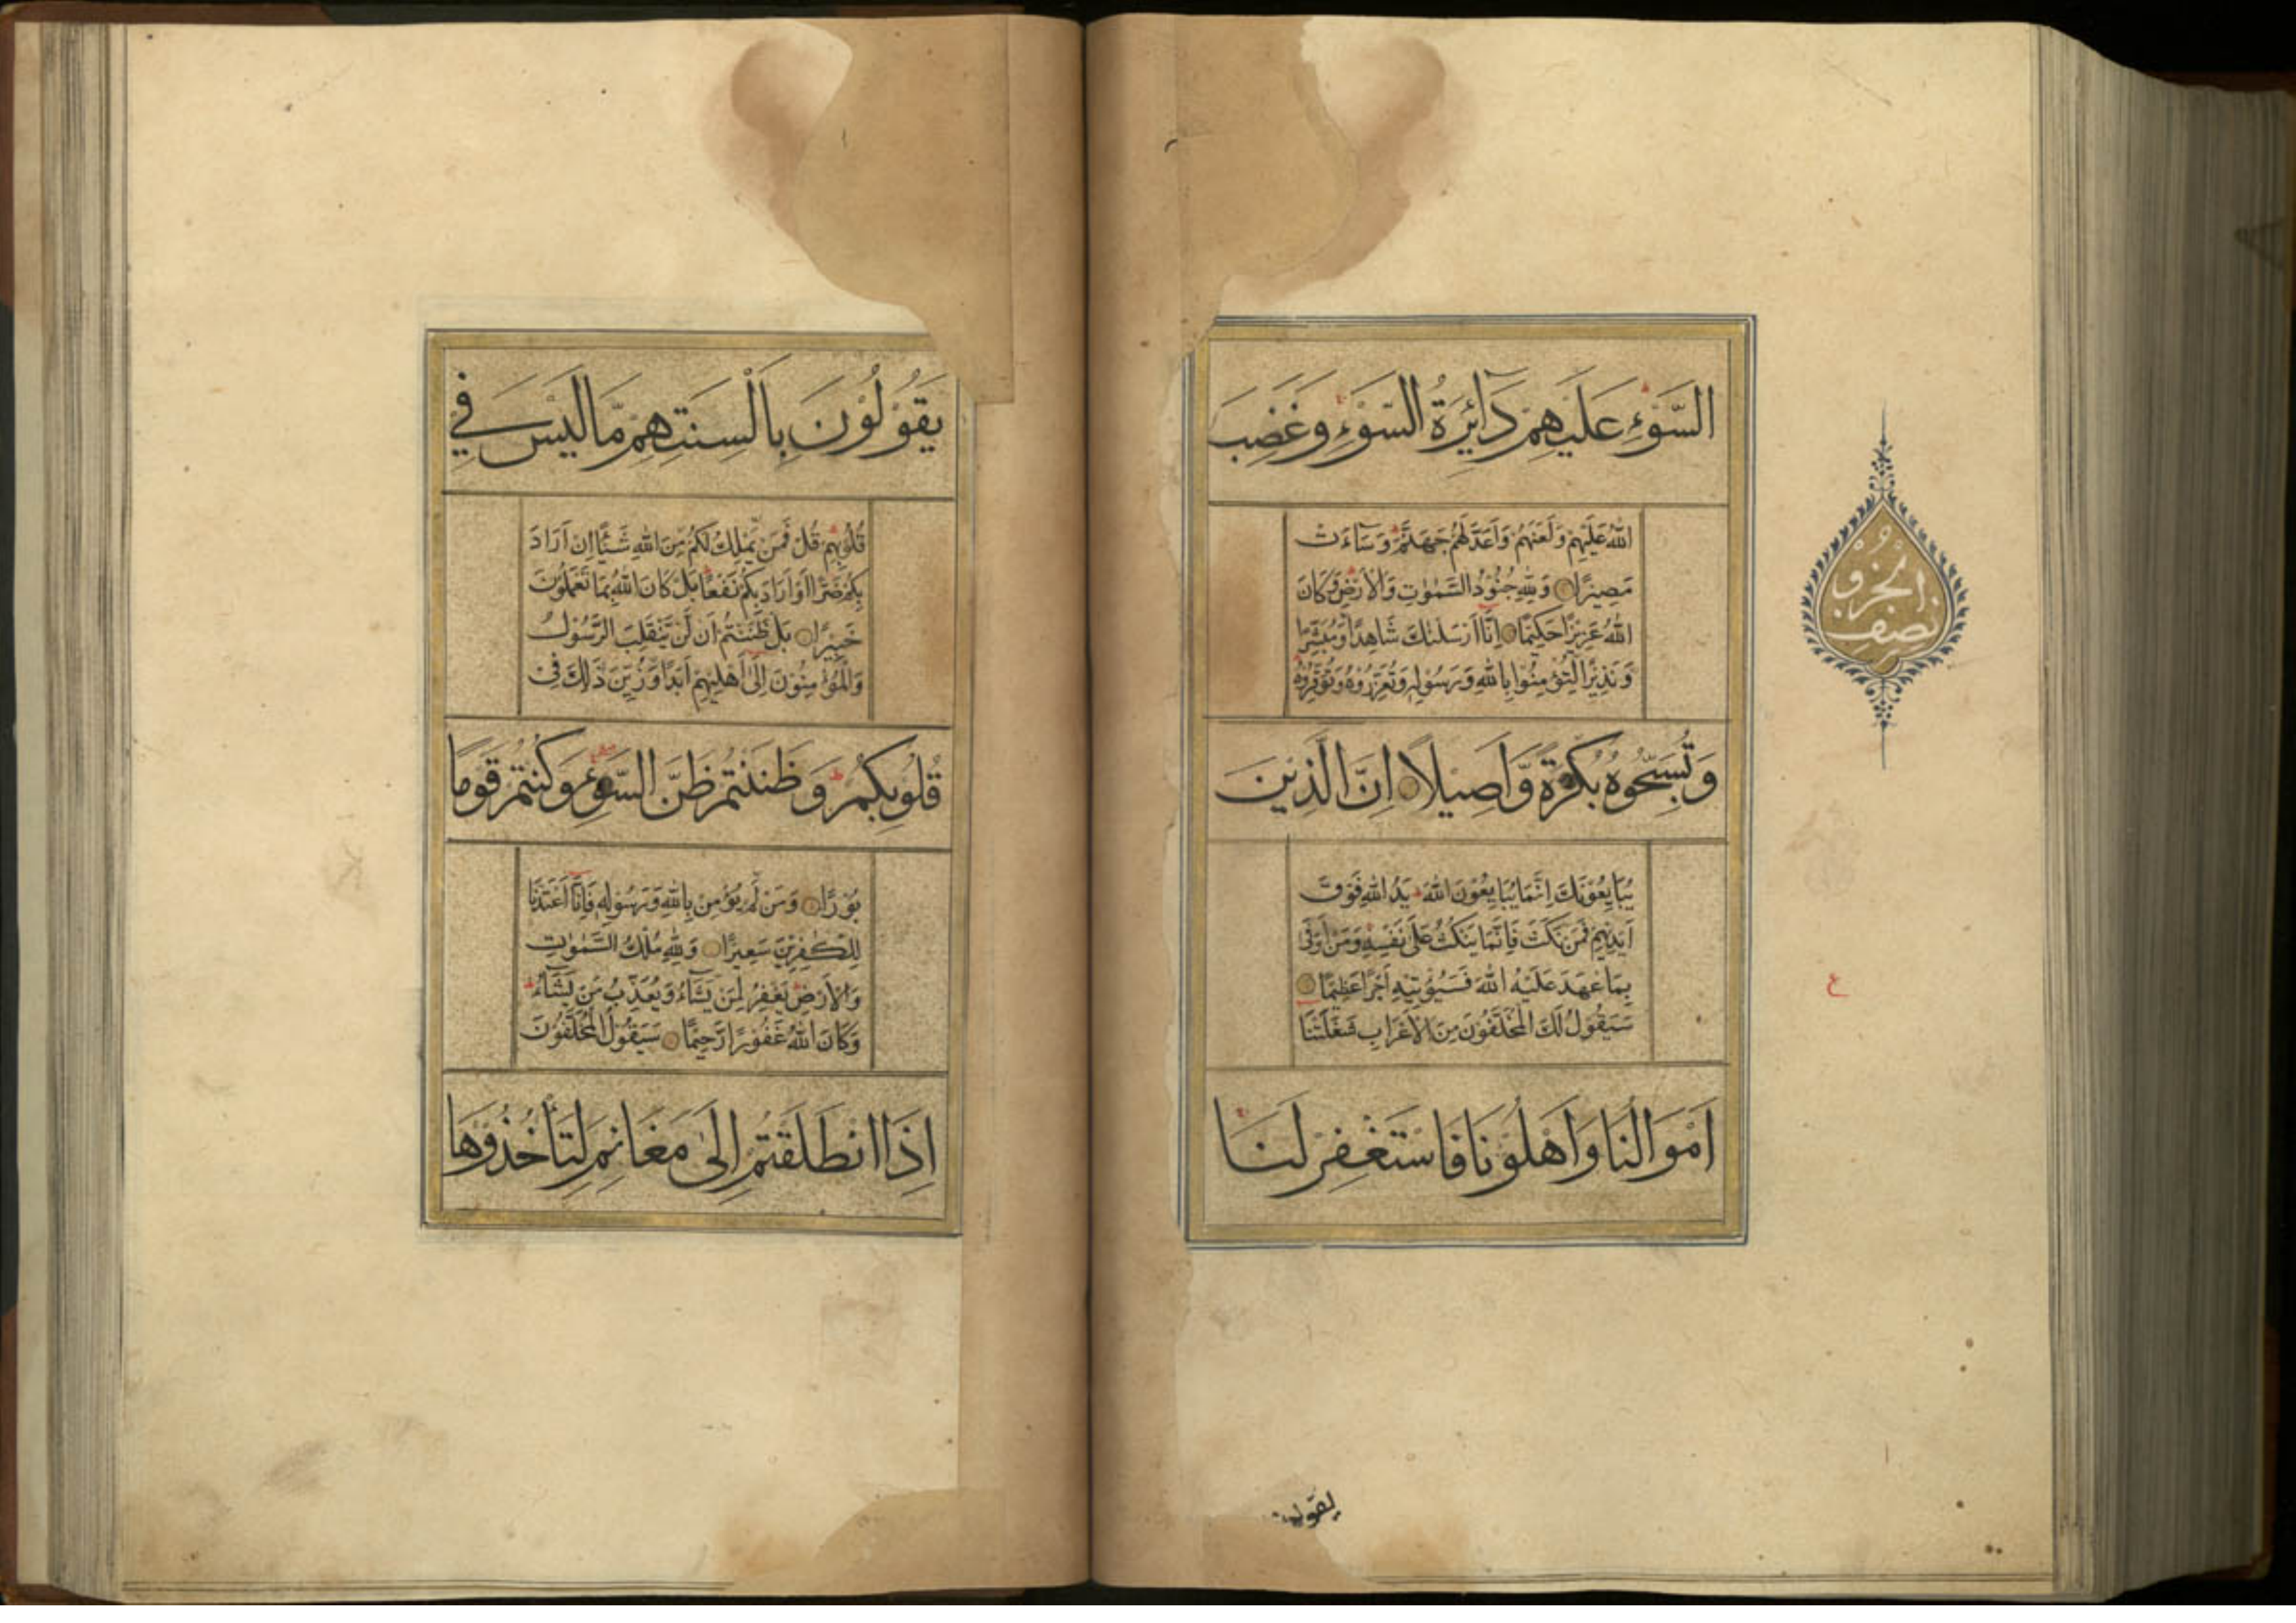 السَّوْءِ عَلَيْهِمْ دَآئِرَةُ السَّوْءِ وَغَضِبَ
اللهُ عَلَيْهِمْ وَلَعَنَهُمْ وَاَعَدَّ لَهُمْ جَهَنَّمَ وَسَآءَتْ
مَصِيْرًا وَلِلّٰهِ جُنُوْدُ السَّمٰوٰتِ وَالْاَرْضِ وَكَانَ
اللهُ عَزِيْزًا حَكِيْمًا اِنَّا اَرْسَلْنٰكَ شَاهِدًا وَّمُبَشِّرًا
وَّنَذِيْرًا لِّتُؤْمِنُوْا بِاللهِ وَرَسُوْلِهٖ وَتُعَزِّرُوْهُ وَتُوَقِّرُوْهُ
وَتُسَبِّحُوْهُ بُكْرَةً وَّاَصِيْلًا اِنَّ الَّذِيْنَ
يُبَايِعُوْنَكَ اِنَّمَا يُبَايِعُوْنَ اللهَ يَدُ اللهِ فَوْقَ
اَيْدِيْهِمْ فَمَنْ نَكَثَ فَاِنَّمَا يَنْكُثُ عَلٰى نَفْسِهٖ وَمَنْ اَوْفٰى
بِمَا عٰهَدَ عَلَيْهُ اللهَ فَسَيُؤْتِيْهِ اَجْرًا عَظِيْمًا
سَيَقُوْلُ لَكَ الْمُخَلَّفُوْنَ مِنَ الْاَعْرَابِ شَغَلَتْنَا
اَمْوَالُنَا وَاَهْلُوْنَا فَاسْتَغْفِرْ لَنَا
نصف الحزب
ع
يقولون
يَقُوْلُوْنَ بِاَلْسِنَتِهِمْ مَّا لَيْسَ فِيْ
قُلُوْبِهِمْ قُلْ فَمَنْ يَّمْلِكُ لَكُمْ مِّنَ اللهِ شَيْئًا اِنْ اَرَادَ
بِكُمْ ضَرًّا اَوْ اَرَادَ بِكُمْ نَفْعًا بَلْ كَانَ اللهُ بِمَا تَعْمَلُوْنَ
خَبِيْرًا بَلْ ظَنَنْتُمْ اَنْ لَّنْ يَّنْقَلِبَ الرَّسُوْلُ
وَالْمُؤْمِنُوْنَ اِلٰى اَهْلِيْهِمْ اَبَدًا وَّزُيِّنَ ذٰلِكَ فِىْ
قُلُوْبِكُمْ وَظَنَنْتُمْ ظَنَّ السَّوْءِ وَكُنْتُمْ قَوْمًا
بُوْرًا وَمَنْ لَّمْ يُؤْمِنْ بِاللهِ وَرَسُوْلِهٖ فَاِنَّا اَعْتَدْنَا
لِلْكٰفِرِيْنَ سَعِيْرًا وَلِلّٰهِ مُلْكُ السَّمٰوٰتِ
وَالْاَرْضِ يَغْفِرُ لِمَنْ يَّشَآءُ وَيُعَذِّبُ مَنْ يَّشَآءُ
وَكَانَ اللهُ غَفُوْرًا رَّحِيْمًا سَيَقُوْلُ الْمُخَلَّفُوْنَ
اِذَا انْطَلَقْتُمْ اِلٰى مَغَانِمَ لِتَاْخُذُوْهَا